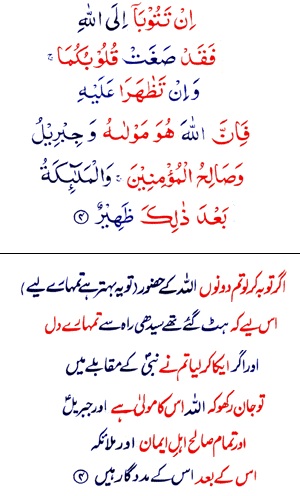 اِنْ تَتُوْبَاۤ اِلَى اللّٰهِ
فَقَدْ صَغَتْ قُلُوْبُكُمَا ۚ
وَاِنْ تَظٰهَرَا عَلَيْهِ
فَاِنَّ اللّٰهَ هُوَ مَوْلٰىهُ وَ جِبْرِيْلُ
وَصَالِحُ الْمُؤْمِنِيْنَ ۚ وَالْمَلٰٓئِكَةُ
بَعْدَ ذٰلِكَ ظَهِيْرٌ ﴿۴﴾
اگر توبہ کر لو تم دونوں اللہ کے حضور (تو یہ بہتر ہے تمہارے لیے)
اس لیے کہ ہٹ گئے تھے سیدھی راہ سے تمہارے دل
اور اگر ایکا کر لیا تم نے نبیؐ کے مقابلے میں
تو جان رکھو کہ اللہ اس کا مولیٰ ہے اور جبریلؑ
اور تمام صالح اہلِ ایمان اور ملائکہ
اس کے بعد اس کے مددگار ہیں ﴿۴﴾